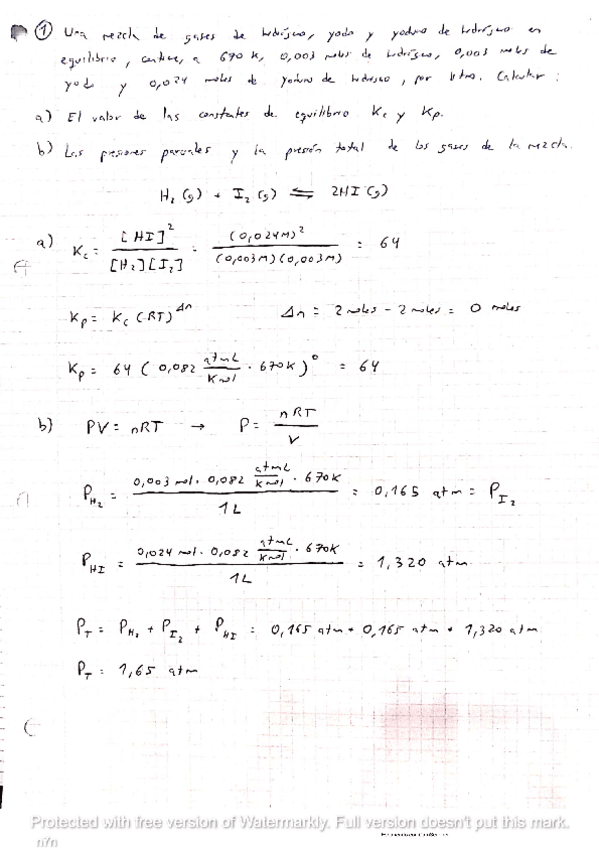 ① Una mezcla de gases de hidrógeno, yodo y yoduro de hidrógeno en
equilibrio, contiene, a 690 K, 0,003 moles de hidrógeno, 0,003 moles de
yodo y 0,024 moles de yoduro de hidrógeno, por litro. Calcular:
a) El valor de las constantes de equilibrio Kc y Kp.
b) Las presiones parciales y la presión total de los gases de la mezcla.
H₂ (g) + I₂ (g) ⇌ 2HI (g)
a) Kc = [HI]² / [H₂][I₂] = (0,024M)² / (0,003M)(0,003M) = 64
Kp = Kc (RT)^Δn Δn = 2 moles - 2 moles = 0 moles
Kp = 64 (0,082 atmL/Kmol · 670K)⁰ = 64
b) PV = nRT → P = nRT / V
P_H₂ = 0,003 mol · 0,082 atmL/Kmol · 670K / 1L = 0,165 atm = P_I₂
P_HI = 0,024 mol · 0,082 atmL/Kmol · 670K / 1L = 1,320 atm
P_T = P_H₂ + P_I₂ + P_HI = 0,165 atm + 0,165 atm + 1,320 atm
P_T = 1,65 atm
Protected with free version of Watermarkly. Full version doesn't put this mark.